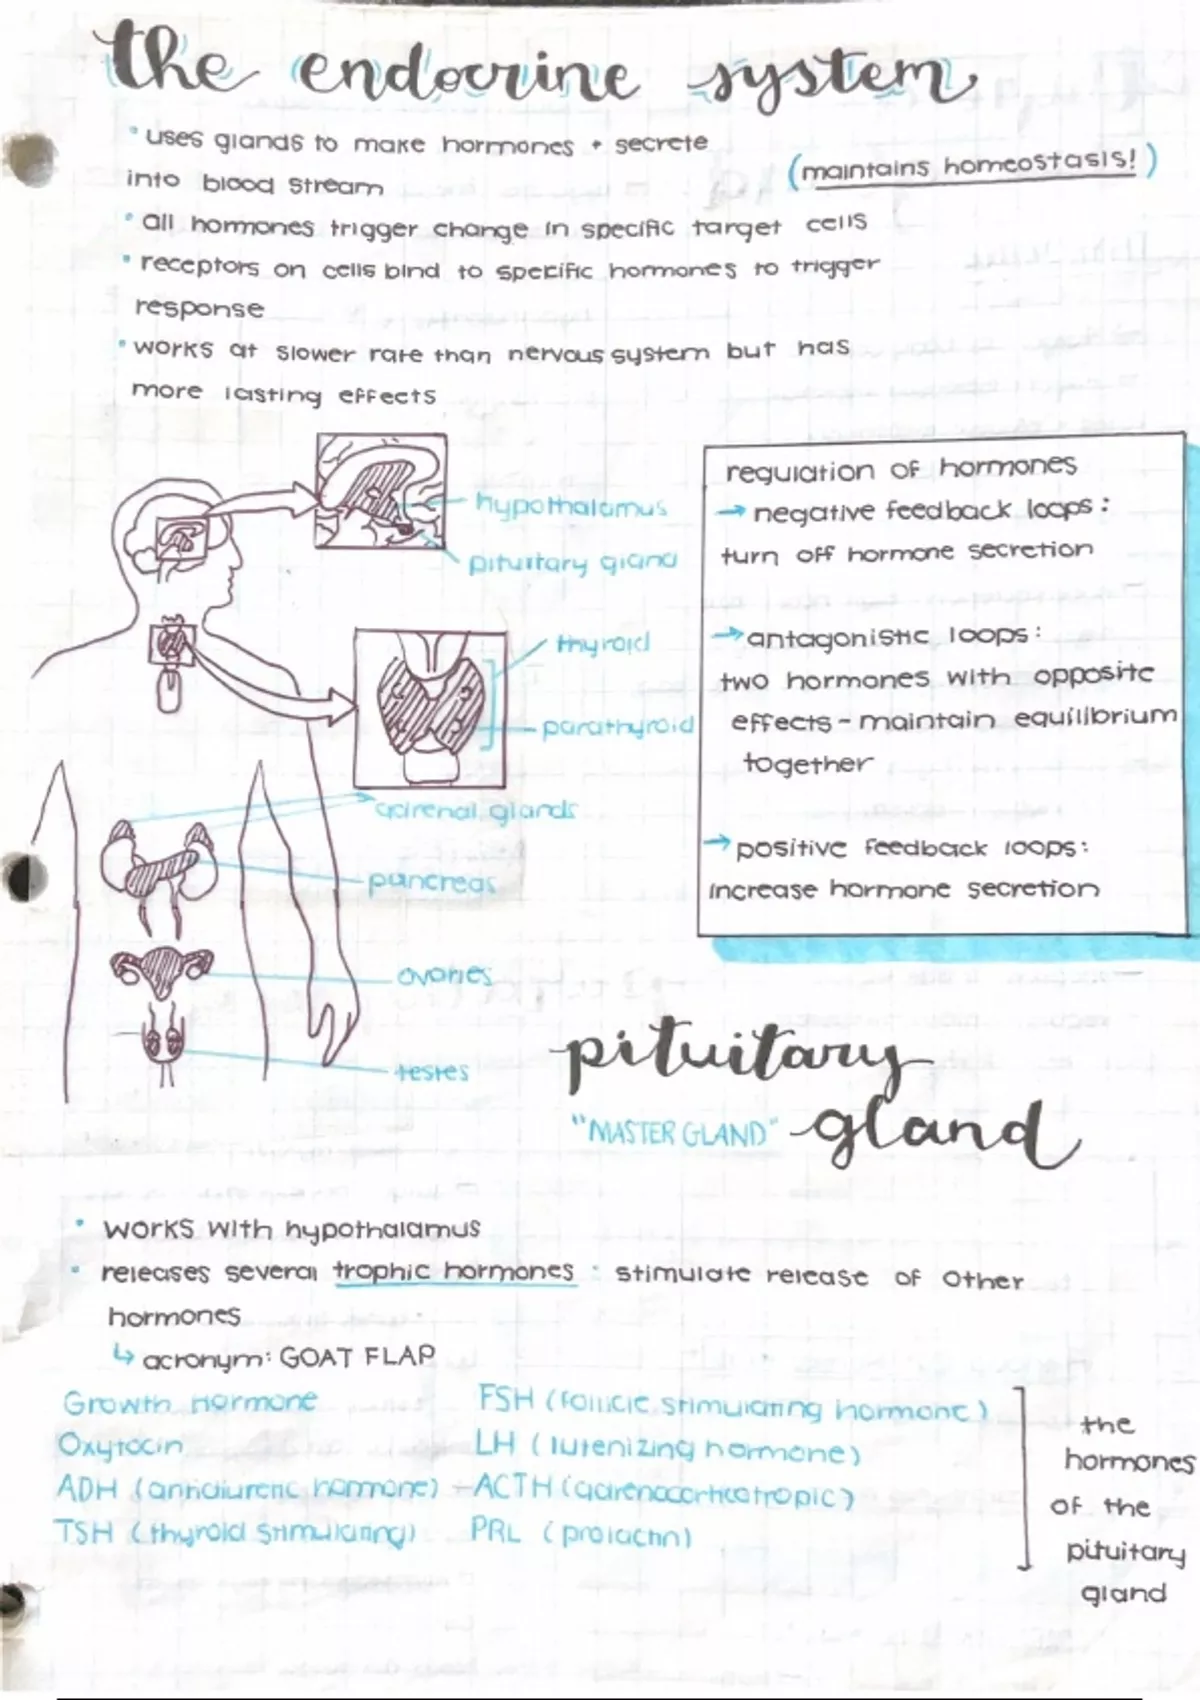 the endocrine system
• uses glands to make hormones + secrete
into blood stream
(maintains homeostasis!)
• all hormones trigger change in specific target cells
• receptors on cells bind to specific hormones to trigger
response
• works at slower rate than nervous system but has
more lasting effects
hypothalamus
pituitary gland
thyroid
parathyroid
adrenal glands
pancreas
ovaries
testes
regulation of hormones
→ negative feedback loops:
turn off hormone secretion
→ antagonistic loops:
two hormones with opposite
effects - maintain equilibrium
together
→ positive feedback loops:
increase hormone secretion
pituitary
"MASTER GLAND" gland
• works with hypothalamus
• releases several trophic hormones: stimulate release of other
hormones
↳ acronym: GOAT FLAP
Growth Hormone
Oxytocin
ADH (antidiuretic hormone)
TSH (thyroid stimulating)
FSH (follicle stimulating hormone)
LH (lutenizing hormone)
ACTH (adrenocorticotropic)
PRL (prolactin)
the
hormones
of the
pituitary
gland